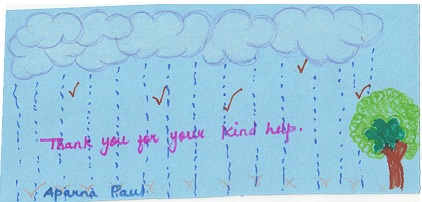 Thank you for your kind help.
Aparna Paul